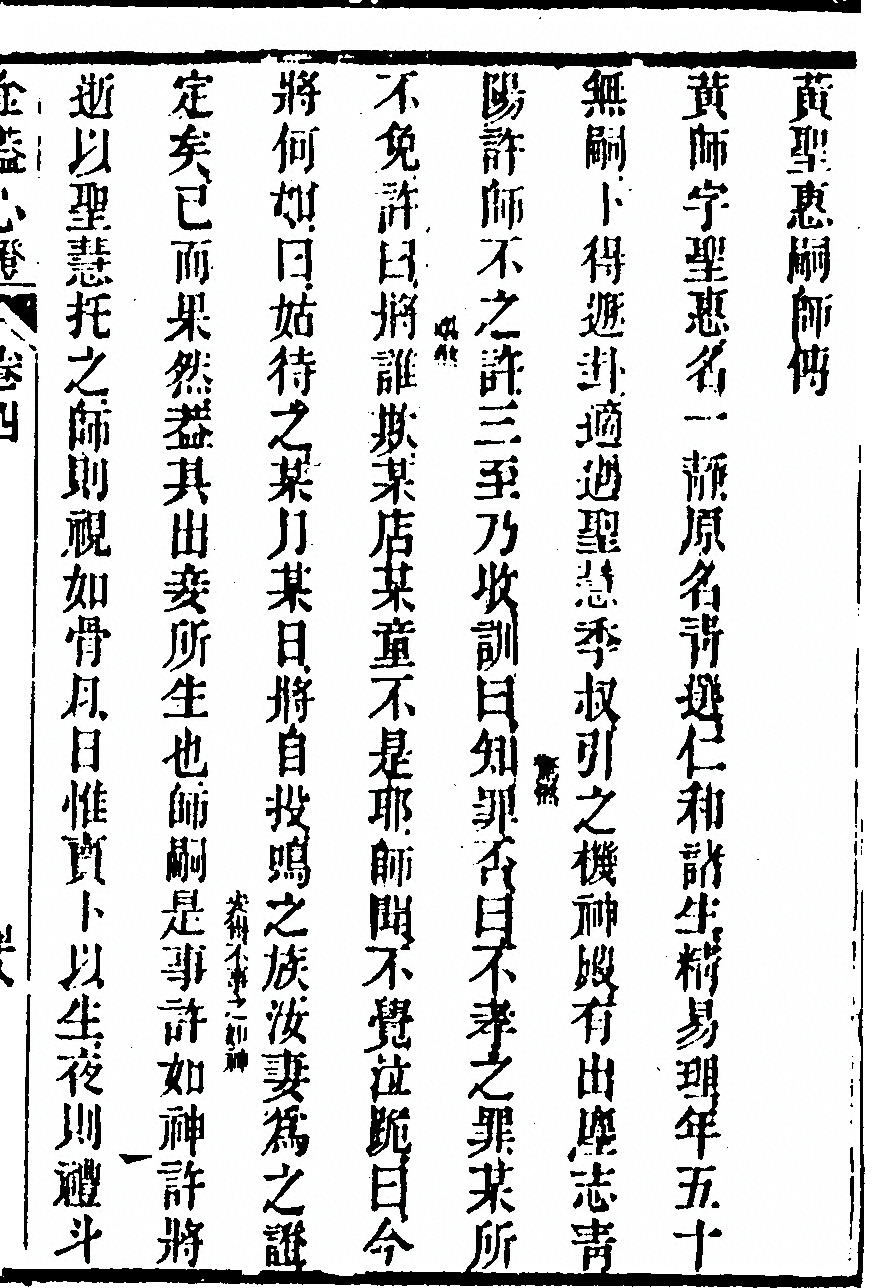 黃聖惠嗣師傳
黃師字聖惠名一靜原名青選仁和諸生精易理年五十
無嗣卜得遯卦適遇聖慧季叔引之機神毀有出塵志青
陽許師不之許三至乃收訓曰知罪否曰不孝之罪某所
不免許曰將誰欺某店某童不是耶師聞不覺泣跪曰今
將何如曰姑待之某月某日將自投鳴之族汝妻為之證
定矣已而果然葢其出妾所生也師嗣是事許如神許將
逝以聖慧托之師則視如骨月日惟賣卜以生夜則禮斗
金葢心燈
卷四